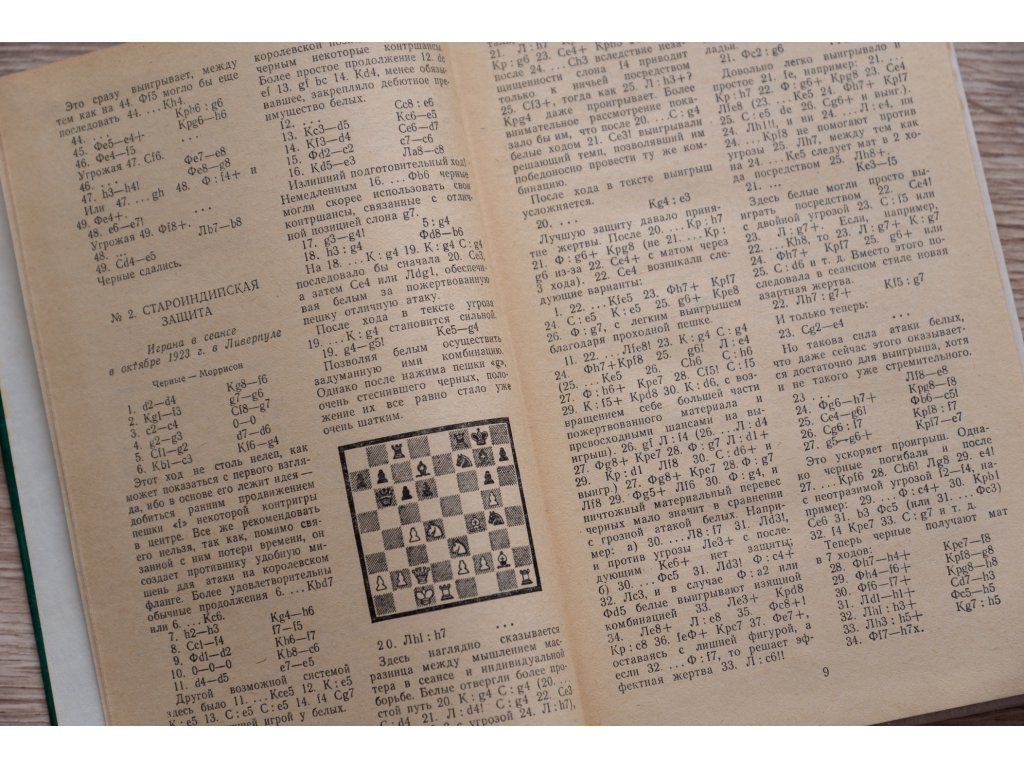 Это сразу выигрывает, между
тем как на 44. Фf5 могло бы еще
последовать 44. ...Kh4.
44. ... Kph6 : g6
45. Фe5—e4+ Kpg6—h6
46. Фe4—f5
Угрожая 47. Cf6.
46. ... Фe7—e8
47. h3—h4! Фe8—g8
Или 47. ...gh 48. Ф : f4+ и
49. Фe4+.
48. e6—e7! ...
Угрожая 49. Фf8+.
48. ... Лb7—b8
49. Cd4—e5
Черные сдались.
№ 2. СТАРОИНДИЙСКАЯ
ЗАЩИТА
Играна в сеансе
в октябре 1923 г. в Ливерпуле
Черные — Моррисон
1. d2—d4 Kg8—f6
2. Kg1—f3 g7—g6
3. c2—c4 Cf8—g7
4. g2—g3 0—0
5. Cf1—g2 d7—d6
6. Kb1—c3 Kf6—g4
Этот ход не столь нелеп, как
может показаться с первого взгля-
да, ибо в основе его лежит идея —
добиться ранним продвижением
пешки «f» некоторой контригры
в центре. Все же рекомендовать
его нельзя, так как, помимо свя-
занной с ним потери времени, он
создает противнику удобную ми-
шень для атаки на королевском
фланге. Более удовлетворительны
обычные продолжения 6. ...Kbd7
или 6. ...Kc6.
7. h2—h3 Kg4—h6
8. Cc1—f4 f7—f5
9. Фd1—d2 Kh6—f7
10. 0—0—0 Kb8—c6
11. d4—d5 e7—e5
Другой возможной системой
здесь было 11. ...Kce5 12. K : e5
K : e5 13. C : e5 C : e5 14. f4 Cg7
игрой у белых.
черным некоторые контршансы.
Более простое продолжение 12. de
ef 13. gf bc 14. Kd4, менее обязы-
вавшее, закрепляло дебютное пре-
имущество белых.
12. ... Cc8 : e6
13. Kc3—d5 Kc6—e7
14. Kf3—d4 Ce6—d7
15. Фd2—c2 c7—c6
16. Kd5—e3 Ла8—c8
Излишний подготовительный ход!
Немедленным 16. ...Фb6 черные
могли скорее использовать свои
контршансы, связанные с отлич-
ной позицией слона g7.
17. g3—g4! f5 : g4
18. h3 : g4 Фd8—b6
На 18. ...K : g4 19. K : g4 C : g4
последовало бы сначала 20. Ce3,
а затем Ce4 или Лdg1, обеспечи-
вая белым за пожертвованную
пешку отличную атаку.
После хода в тексте угроза
19. ...K : g4 становится сильной.
19. g4—g5! Ke5—g4
Позволяя белым осуществить
задуманную ими комбинацию.
Однако после нажима пешки «g»,
очень стеснившего черных, поло-
жение их все равно стало уже
очень шатким.
20. Лh1 : h7 ...
Здесь наглядно сказывается
разница между мышлением мас-
тера в сеансе и индивидуальной
борьбе. Белые отвергли более про-
стой путь 20. K : g4 C : g4 (20. ...
C : d4 21. Л : d4! C : g4 22. Ce3
с угрозой 24. Л : h7),
21. Л : h7
Kp : g6 23. Ce4+ Kph5
после 24. ...Ch3 вследствие неза-
щищенности слона f4 приводит
только к ничьей посредством
25. Cf3+, тогда как 25. Л : h3+?
Kpg4 даже проигрывает. Более
внимательное рассмотрение пока-
зало бы им, что после 20. ...C : g4
белые ходом 21. Ce3! выигрывали
решающий темп, позволявший им
победоносно провести ту же ком-
бинацию.
После хода в тексте выигрыш
усложняется.
20. ... Kg4 : e3
Лучшую защиту давало приня-
тие жертвы. После 20. ...Kp : h7
21. Ф : g6+ Kpg8 (не 21. ...Kp :
g6 из-за 22. Ce4+ с матом через
3 хода). 22. Ce4 возникали сле-
дующие варианты:
I. 22. ...Kfe5 23. Фh7+ Kpf7
24. C : e5 K : e5 25. g6+ Kpe8
26. Ф : g7, с легким выигрышем
благодаря проходной пешке.
II. 22. ...Лfe8! 23. K : g4 C : g4
24. Фh7+ Kpf8 25. g6! Л : e4
(25. ...Ke5 26. Ch6 C : h6
27. Ф : h6+ Kpe7 28. Cf5! C : f5
29. K : f5+ Kpd8 30. K : d6, с воз-
вращением себе большей части
пожертвованного материала и
превосходными шансами на вы-
игрыш). 26. gf Л : f4 (26. ...Л : d4
27. Фg8+ Kpe7 28. Ф : g7 Л : d1+
29. Kp : d1 Лf8 30. C : d6+ и
выигр.) 27. Фg8+ Kpe7 28. Ф : g7
Лf8 29. Фg5+ Лf6 30. e3! Этот
ничтожный материальный перевес
черных мало значит в сравнении
с грозной атакой белых. Напри-
мер: а) 30. ...Л8 : f7 31. Лd3!,
и против угрозы Лe3+ с после-
дующим Ke6+ нет защиты;
б) 30. ...Фc5 31. Лd3! Ф : c4+
32. Лc3, и в случае Ф : a2 или
Фd5 белые выигрывают изящной
комбинацией 33. Лe3+ Kpd8
34. Лe8+ Л : e8 35. Фc8+!
Kp : c8 36. feФ+ Kpc7 37. Фe7+,
оставаясь с лишней фигурой, а
если 32. ...Ф : f7, то решает эф-
фектная жертва 33. Л : c6!!
ладьи.
21. Фc2 : g6
Довольно легко выигрывало и
простое 21. fe, например: 21. ...
Kp : h7 22. Ф : g6+ Kpg8 23. Ce4
Лfe8 (23. ...Ke5 24. Фh7+ Kpf7
25. C : e5 de 26. Cg6+ и выиг.).
24. Лh1!!, и ни 24. ...Л : e4, ни
24. ...Kpf8 не помогают против
угрозы 25. Лh7, между тем как
на 24. ...Ke5 следует мат в 2 хо-
да посредством 25. Лh8+.
21. ... Ke3—f5
Здесь белые могли просто вы-
играть посредством 22. Ce4!
с двойной угрозой 23. C : f5 или
23. Л : g7+. Если, например,
22. ...Kh8, то 23. Л : g7+ K : g7
24. Фh7+ Kpf7 25. g6+ или
25. C : d6 и т. д. Вместо этого по-
следовала в сеансном стиле новая
азартная жертва.
22. Лh7 : g7+ Kf5 : g7
И только теперь:
23. Cg2—e4 ...
Но такова сила атаки белых,
что даже сейчас этого оказывает-
ся достаточно для выигрыша, хотя
и не такого уже стремительного.
23. ... Лf8—e8
24. Фg6—h7+ Kpg8—f8
25. Ce4—g6! Фb6—c5!
26. Cg6 : f7 Kpf8 : f7
27. g5—g6+ Kpf7—e7
Это ускоряет проигрыш. Одна-
ко черные погибали и после
27. ...Kpf6 28. Ch6! Лg8 29. e4!
с неотразимой угрозой f2—f4, на-
пример: 29. ...Ф : c4+ 30. Kpb1
Ce6 31. b3 Фc5 (или 31. ...Фc3)
32. f4 Kpe7 33. C : g7 и т. д.
Теперь черные получают мат
в 7 ходов:
28. Фh7—h4+ Kpe7—f8
29. Фh4—f6+ Kpf8—g8
30. Фf6—f7+ Kpg8—h8
31. Лd1—h1+ Cd7—h3
32. Лh1 : h3+ Фc5—h5
33. Лh3 : h5+ Kg7 : h5
34. Фf7—h7x.
9